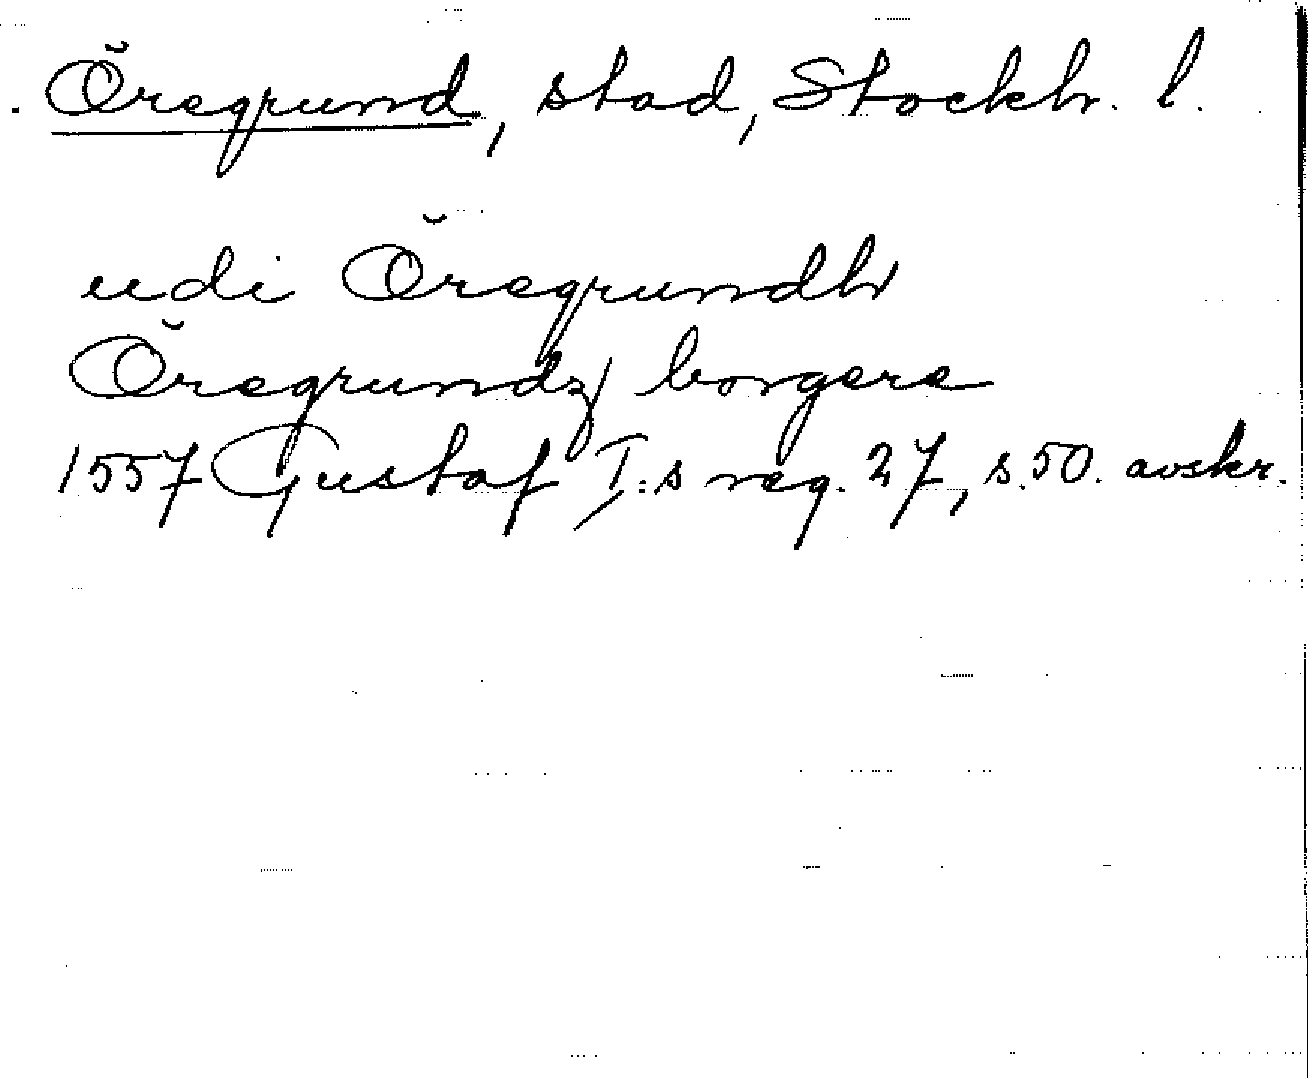 Öregrund, stad, Stockh. l.
udi Öregrundh
Öregrundz borgere
1557 Gustaf I:s reg. 27, s. 50. avskr.